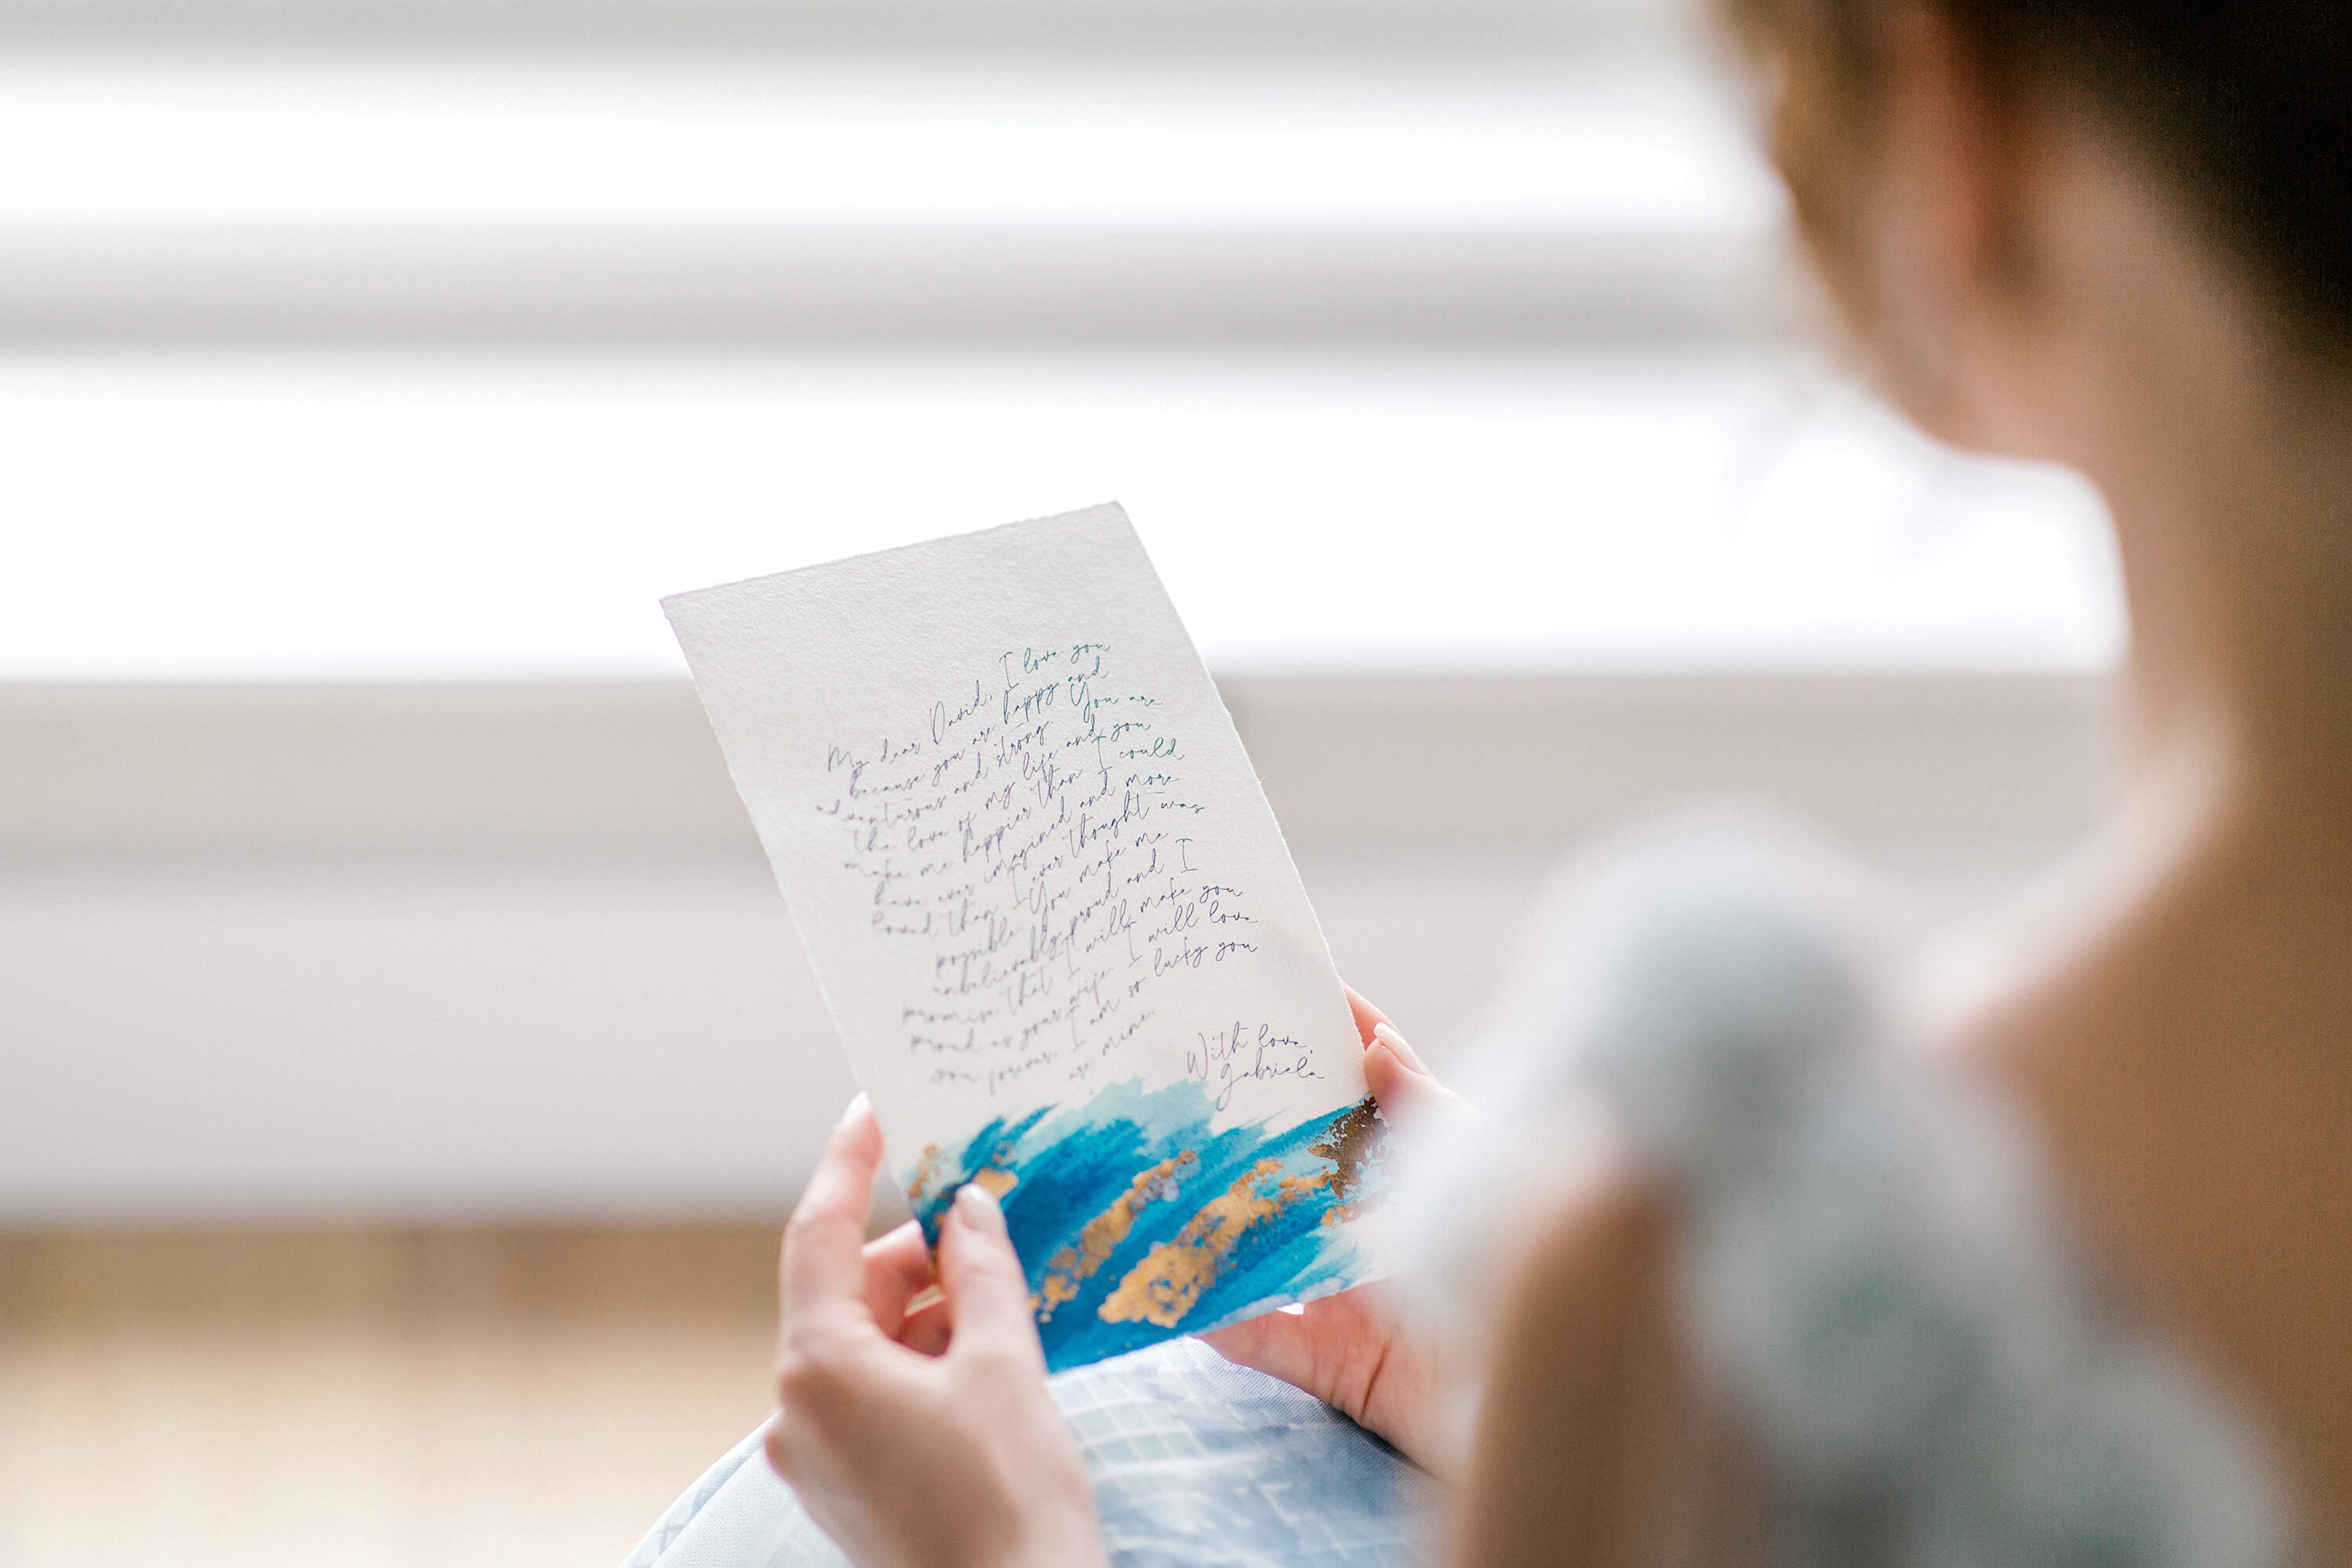 My dear David, I love you
because you are happy and
venturous and strong. You are
the love of my life and you
make me happier than I could
have ever imagined and more
loved than I ever thought was
possible. You make me
unbelievably proud and I
promise that I will make you
proud as your wife. I will love
you forever. I am so lucky you
are mine.
With love,
Gabriela